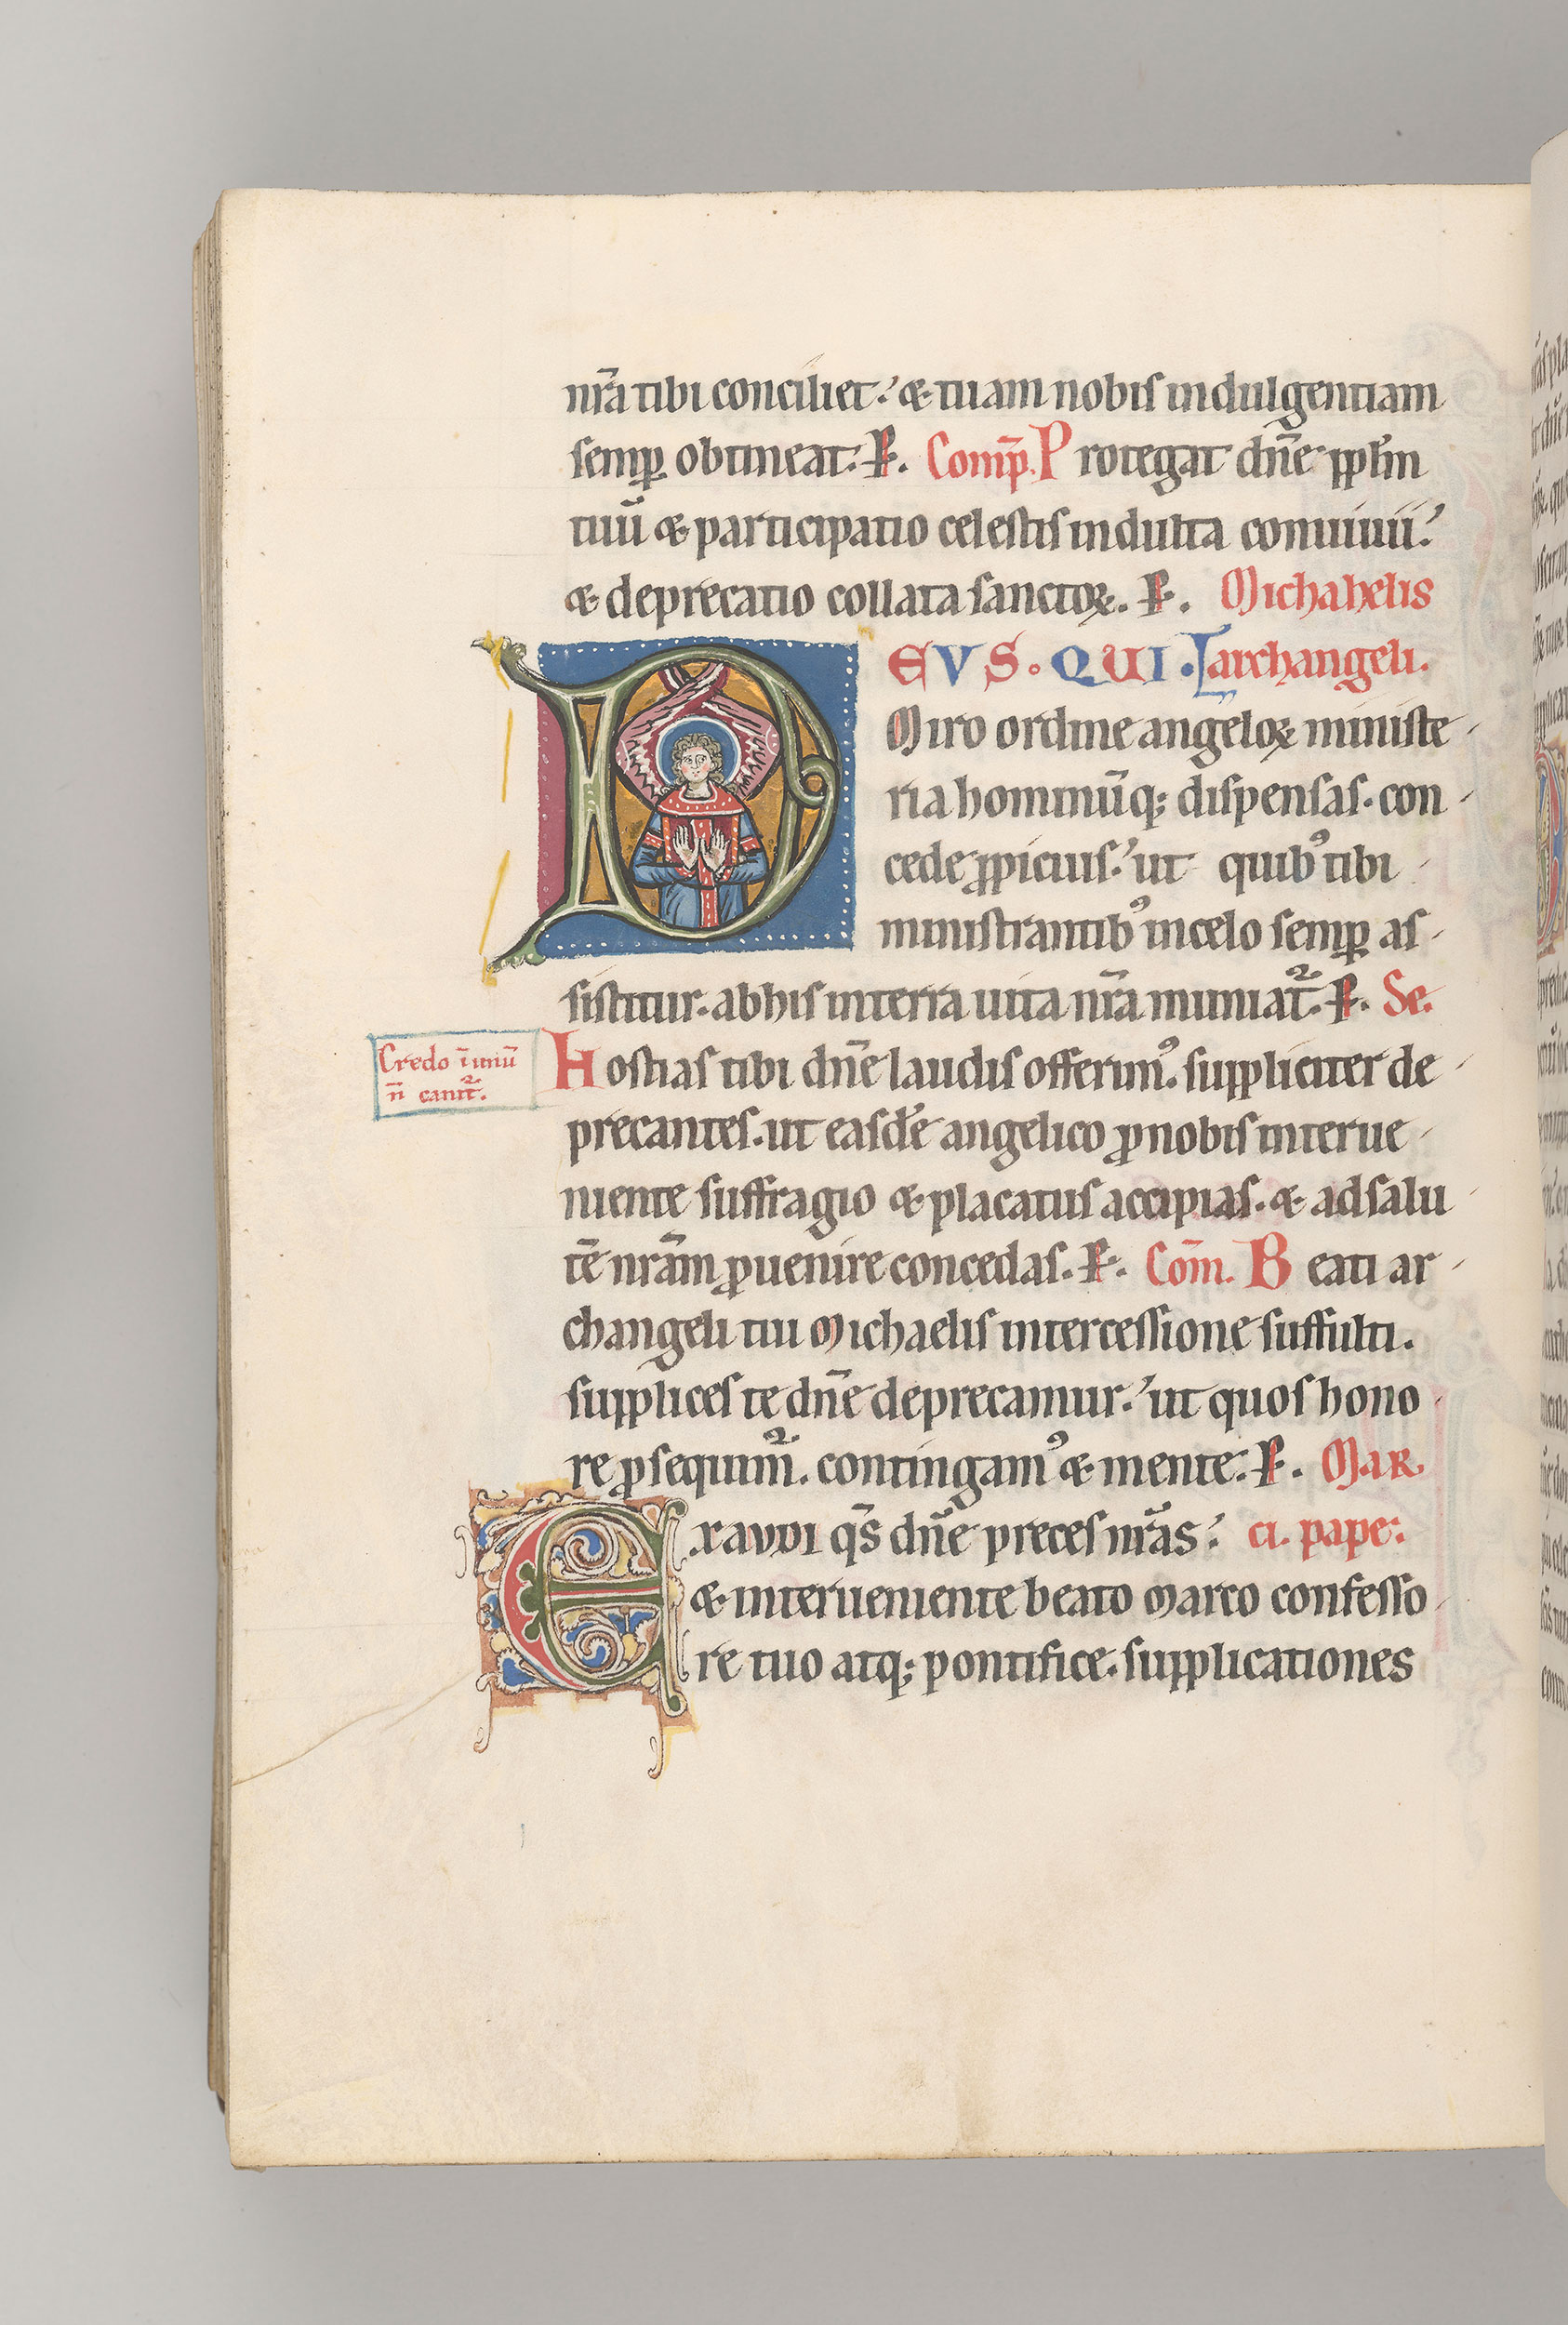 nr̄a tibi conciliet. & tuam nobis indulgentiam
semꝑ obtineat. P̱. Com̄p. Protegat dn̄e pp̄lm
tuū & participatio celestis indulta conuiuii.
& deprecatio collata sanctoꝝ. P̱. Michahelis
DEVS. QUI. archangeli.
Miro ordine angeloꝝ ministe
ria hominūq; dispensas. con
cede ꝓpicius. ut quibꝰ tibi
ministrantibꝰ in celo semꝑ as
sistitur. ab his in terra uita nr̄a muniat᷑. P̱. Se.
Credo ī uniū
n̄ canit᷑.
Hostias tibi dn̄e laudis offerimꝰ. suppliciter de
precantes. ut easdē angelico ꝓ nobis interue
niente suffragio & placatus accipias. & ad salu
tē nr̄am ꝓuenire concedas. P̱. Com̄. Beati ar
changeli tui Michaelis intercessione suffulti.
supplices te dn̄e deprecamur. ut quos hono
re ꝓsequim᷑. contingamꝰ & mente. P̱. Mar
Exaudi qs̄ dn̄e preces nr̄as. ci. pape.
& interueniente beato Marco confesso
re tuo atq; pontifice. supplicationes